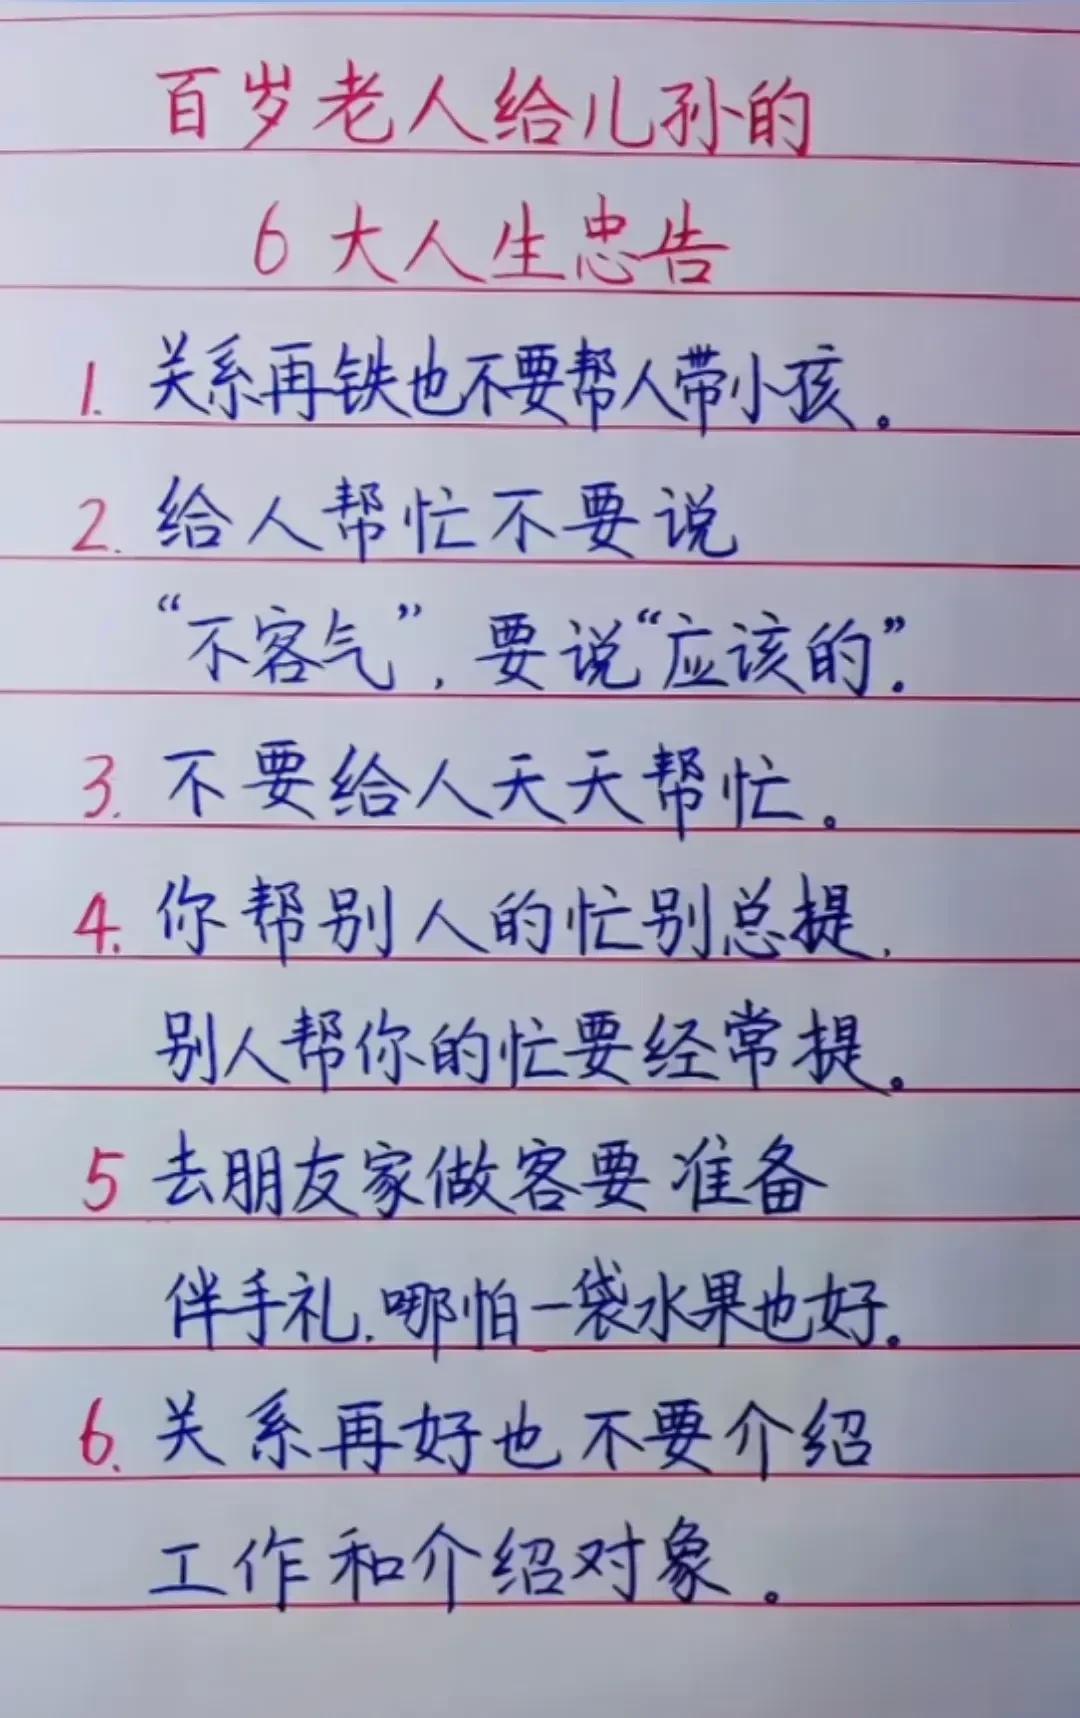 百岁老人给儿孙的
6大人生忠告
1. 关系再铁也不要帮人带小孩。
2. 给人帮忙不要说
“不客气”,要说“应该的”.
3. 不要给人天天帮忙。
4. 你帮别人的忙别总提,
别人帮你的忙要经常提。
5 去朋友家做客要准备
伴手礼,哪怕一袋水果也好。
6. 关系再好也不要介绍
工作和介绍对象。